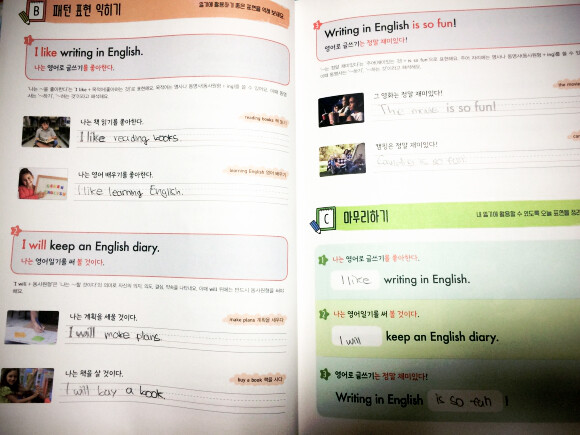 B 패턴 표현 익히기
일기에 활용하기 좋은 표현을 익혀 보세요.
1
I like writing in English.
나는 영어로 글쓰기를 좋아한다.
reading books 책 읽기
나는 책 읽기를 좋아한다.
I like reading books.
learning English 영어 배우기
나는 영어 배우기를 좋아한다.
I like learning English.
2
I will keep an English diary.
나는 영어일기를 써 볼 것이다.
나는 계획을 세울 것이다.
make plans 계획을 세우다
I will make plans.
나는 책을 살 것이다.
buy a book 책을 사다
I will buy a book.
3
Writing in English is so fun!
영어로 글쓰기는 정말 재미있다!
그 영화는 정말 재미있다!
the movie
The movie is so fun!
캠핑은 정말 재미있다!
is so fun
C 마무리하기
내 일기에 활용할 수 있도록 오늘 표현을 정리
1
나는 영어로 글쓰기를 좋아한다.
I like writing in English.
2
나는 영어일기를 써 볼 것이다.
I will keep an English diary.
3
영어로 글쓰기는 정말 재미있다!
Writing in English is so fun !